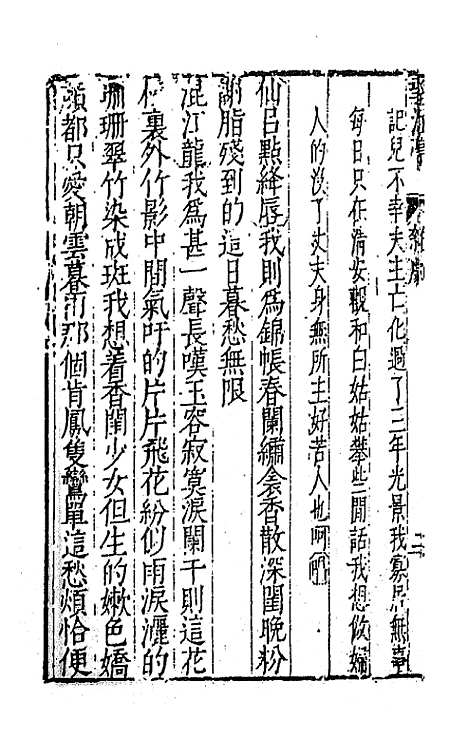 記兒不幸夫主亡化過了三年光景我寡居無事
每日只在清安觀和白姑姑攀些閒話我想做婦
人的沒了丈夫身無所主好苦人也呵
仙呂點絳唇我則為錦帳春闌繡衾香散深閨晚粉
謝脂殘到的這日暮愁無限
混江龍我為甚一聲長嘆玉容寂寞淚闌干則這花
枝裏外竹影中間氣吁的片片飛花紛似雨淚灑的
珊珊翠竹染成斑我想着香閨少女但生的嫩色嬌
顏都只愛朝雲暮雨那個肯鳳隻鸞單這愁煩恰便
二